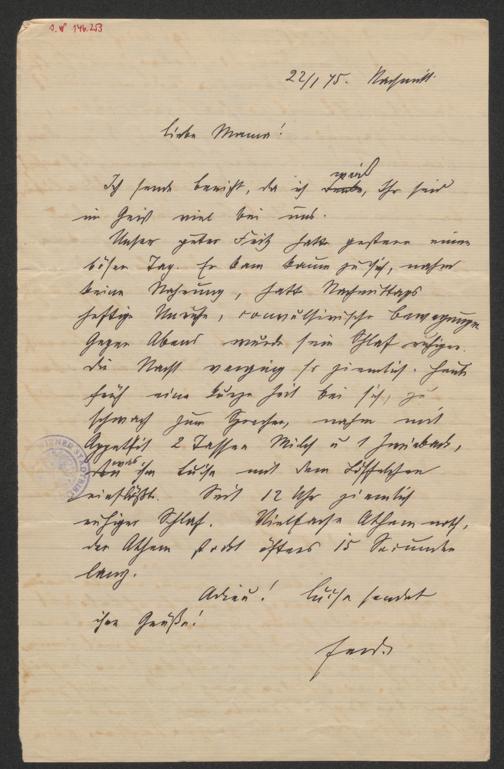 22/1 75. Nachmitt.
Liebe Mama!
Ich sende Bericht, da ich weiß, Ihr seid
im Geist viel bei uns.
Unser guter Fritz hatte gestern einen
bösen Tag. Er kam kaum zu sich, nahm
keine Nahrung, hatte Nachmittags
heftige Unruhe, convulsivische Bewegungen
Gegen Abend wurde sein Schlaf ruhiger.
Die Nacht verging so ziemlich. Heute
früh eine kurze Zeit bei sich, zu
schwach zum Sprechen, nahm mit
Appettit 2 Tassen Milch u 1 Zwieback,
was ihm Luise mit dem Löffelchen
einflößte. Seit 12 Uhr ziemlich
ruhiger Schlaf. Vielfache Athemnoth,
der Athem stockt öfters 15 Secunden
lang.
Adieu! Luise sendet
ihre Grüße!
Ferd.